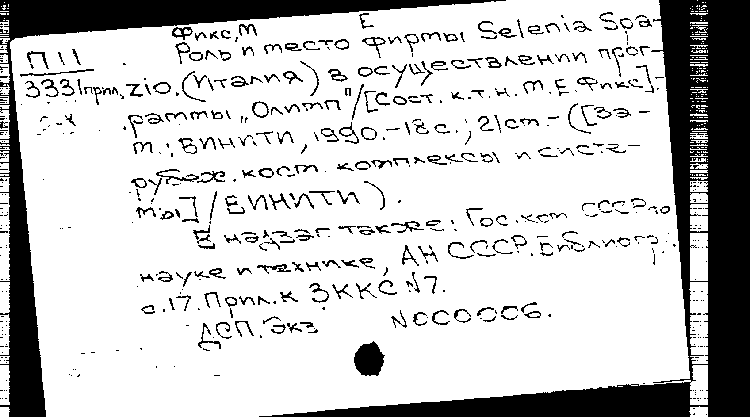 Фикс, М Е
П 11
Роль и место фирмы Selenia Spa-
333/прил. zio. (Италия) в осуществлении прог-
раммы „Олимп"/[Сост. к.т.н. М.Е. Фикс].-
М.: ВИНИТИ, 1990.-18с.; 21см.- ([За-
рубеж. косм. комплексы и систе-
мы]/ВИНИТИ).
В надзаг. также: Гос. ком СССР по
науке и технике, АН СССР. Библиогр.:
с.17. Прил. к ЗККС N7.
ДСП. Экз N000006.